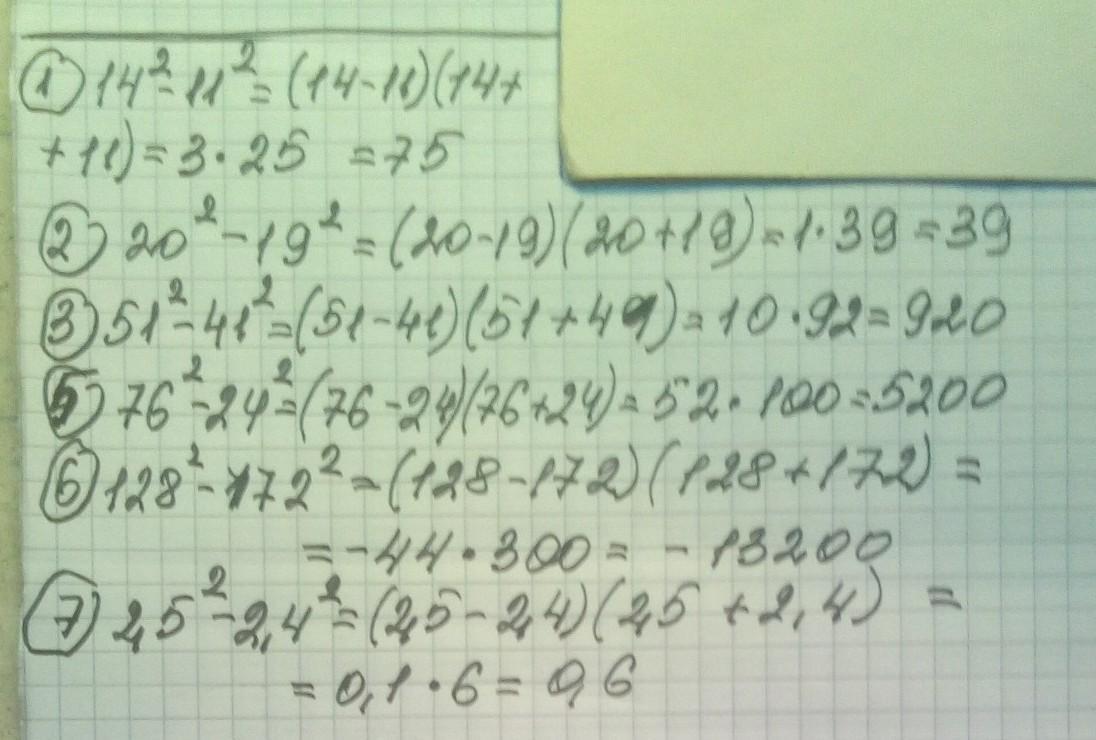 ① 14² - 11² = (14 - 11)(14 +
+ 11) = 3 · 25 = 75
② 20² - 19² = (20 - 19)(20 + 19) = 1 · 39 = 39
③ 51² - 41² = (51 - 41)(51 + 41) = 10 · 92 = 920
⑤ 76² - 24² = (76 - 24)(76 + 24) = 52 · 100 = 5200
⑥ 128² - 172² = (128 - 172)(128 + 172) =
= -44 · 300 = -13200
⑦ 2,5² - 2,4² = (2,5 - 2,4)(2,5 + 2,4) =
= 0,1 · 6 = 0,6